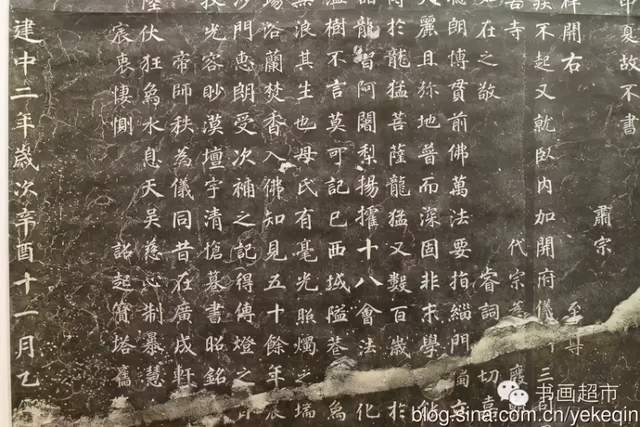 中夏故不書
祥開右 肅宗 至尊
疾不起又就臥内加開府儀 三司
善寺 代宗為 廢
如在之敬 睿詞 切嘉
朗博貫前佛萬法要指緇門獨立
大麗且弥地普而深固非末學能
於龍猛菩薩龍猛又數百歲於
龍智阿闍梨揚攉十八會法化
溫樹不言莫可記已西域隘巷為
黑浪其生也母氏有毫光照燭之瑞
場浴蘭焚香入佛知見五十餘年晨
沙門惠朗受次補之記得傳燈之旨
光容眇漠壇宇清愴墓書昭銘
帝師秩為儀同昔在廣成軒
陸伏狂烏水息天吴慈心制暴慧
宸衷悽惻 詔起寶塔舊
建中二年歲次辛酉十一月乙
书画超市
blog.sina.com.cn/yekeqin